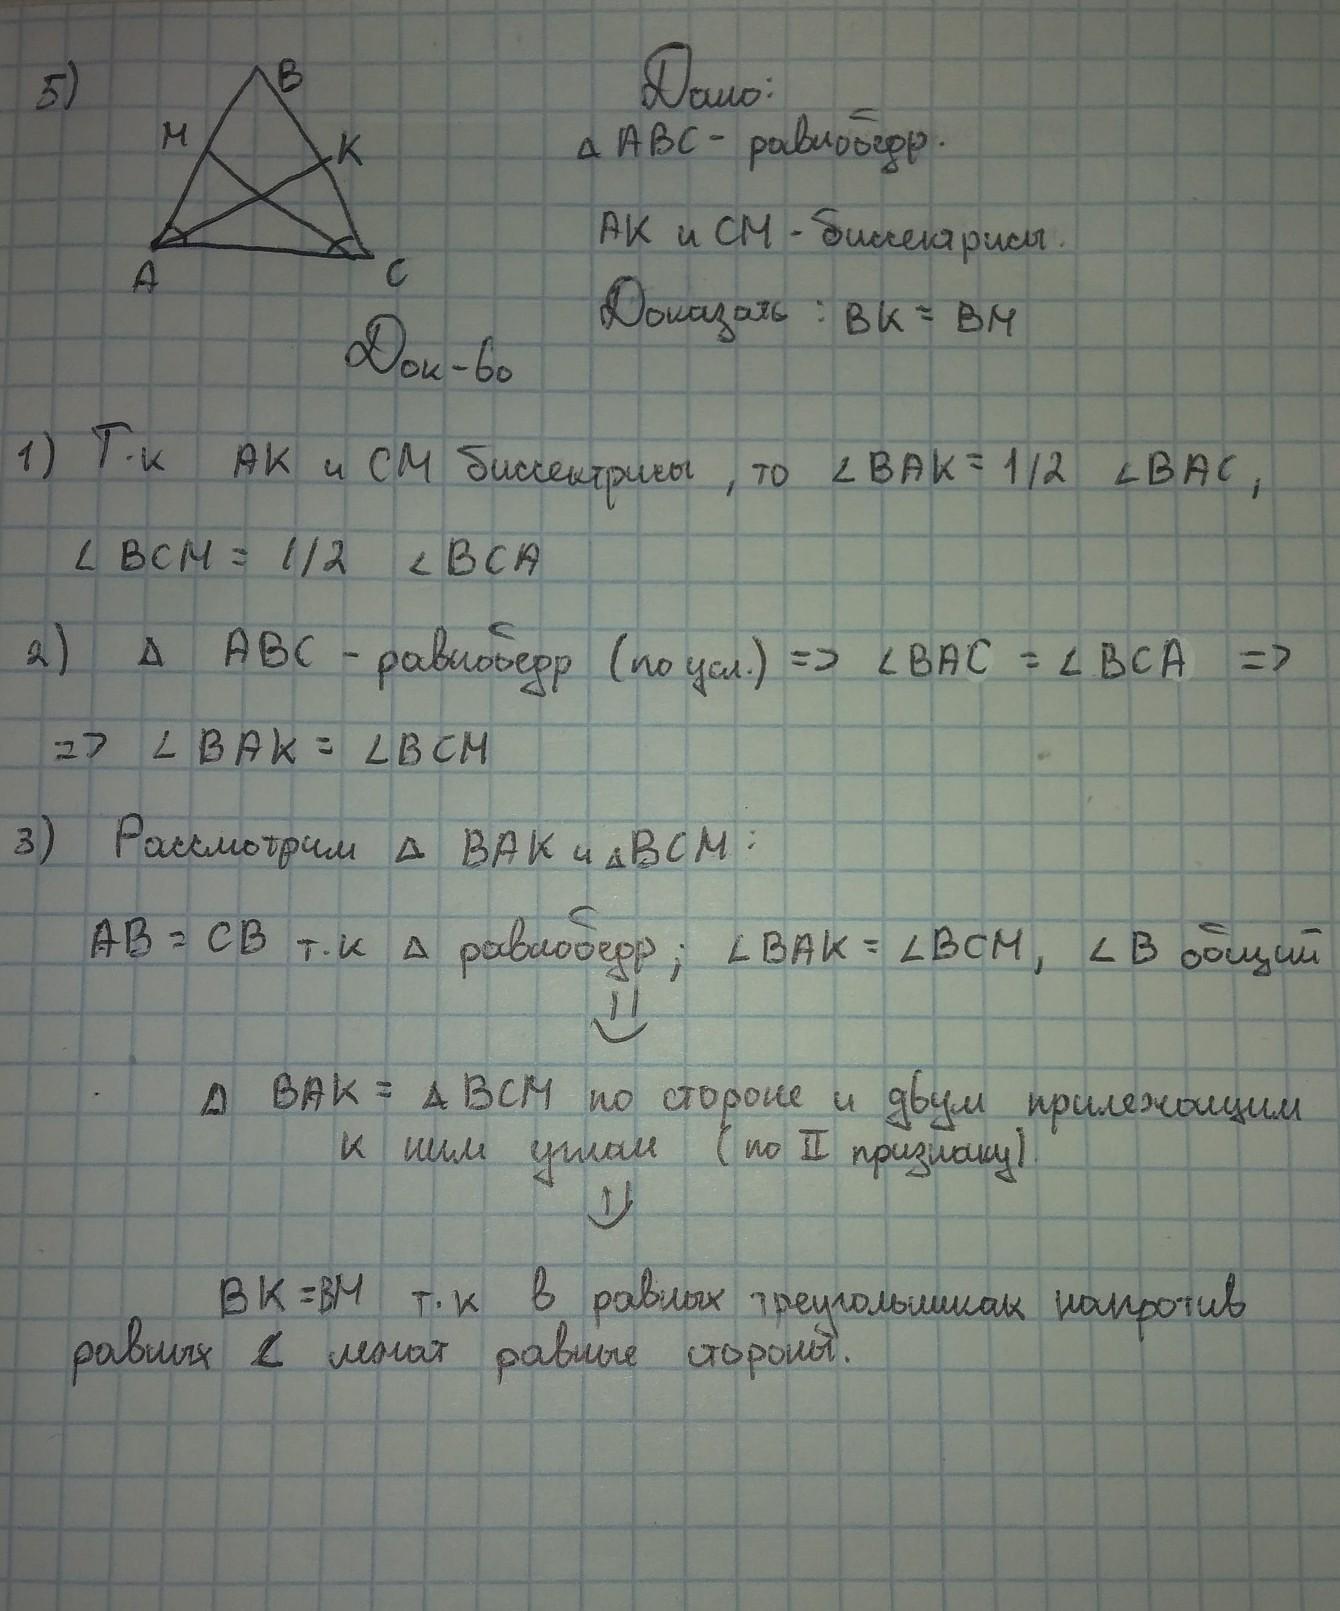 5)
B
M
K
A
C
Дано:
△ ABC - равнобедр.
AK и CM - биссектрисы.
Доказать: BK = BM
Док-во
1) Т.к AK и CM биссектрисы, то ∠BAK = 1/2 ∠BAC,
∠BCM = 1/2 ∠BCA
2) △ ABC - равнобедр (по усл.) => ∠BAC = ∠BCA =>
=> ∠BAK = ∠BCM
3) Рассмотрим △ BAK и △BCM:
AB = CB т.к △ равнобедр; ∠BAK = ∠BCM, ∠B общий
△ BAK = △BCM по стороне и двум прилежащим
к ним углам (по II признаку).
BK = BM т.к в равных треугольниках напротив
равных ∠ лежат равные стороны.